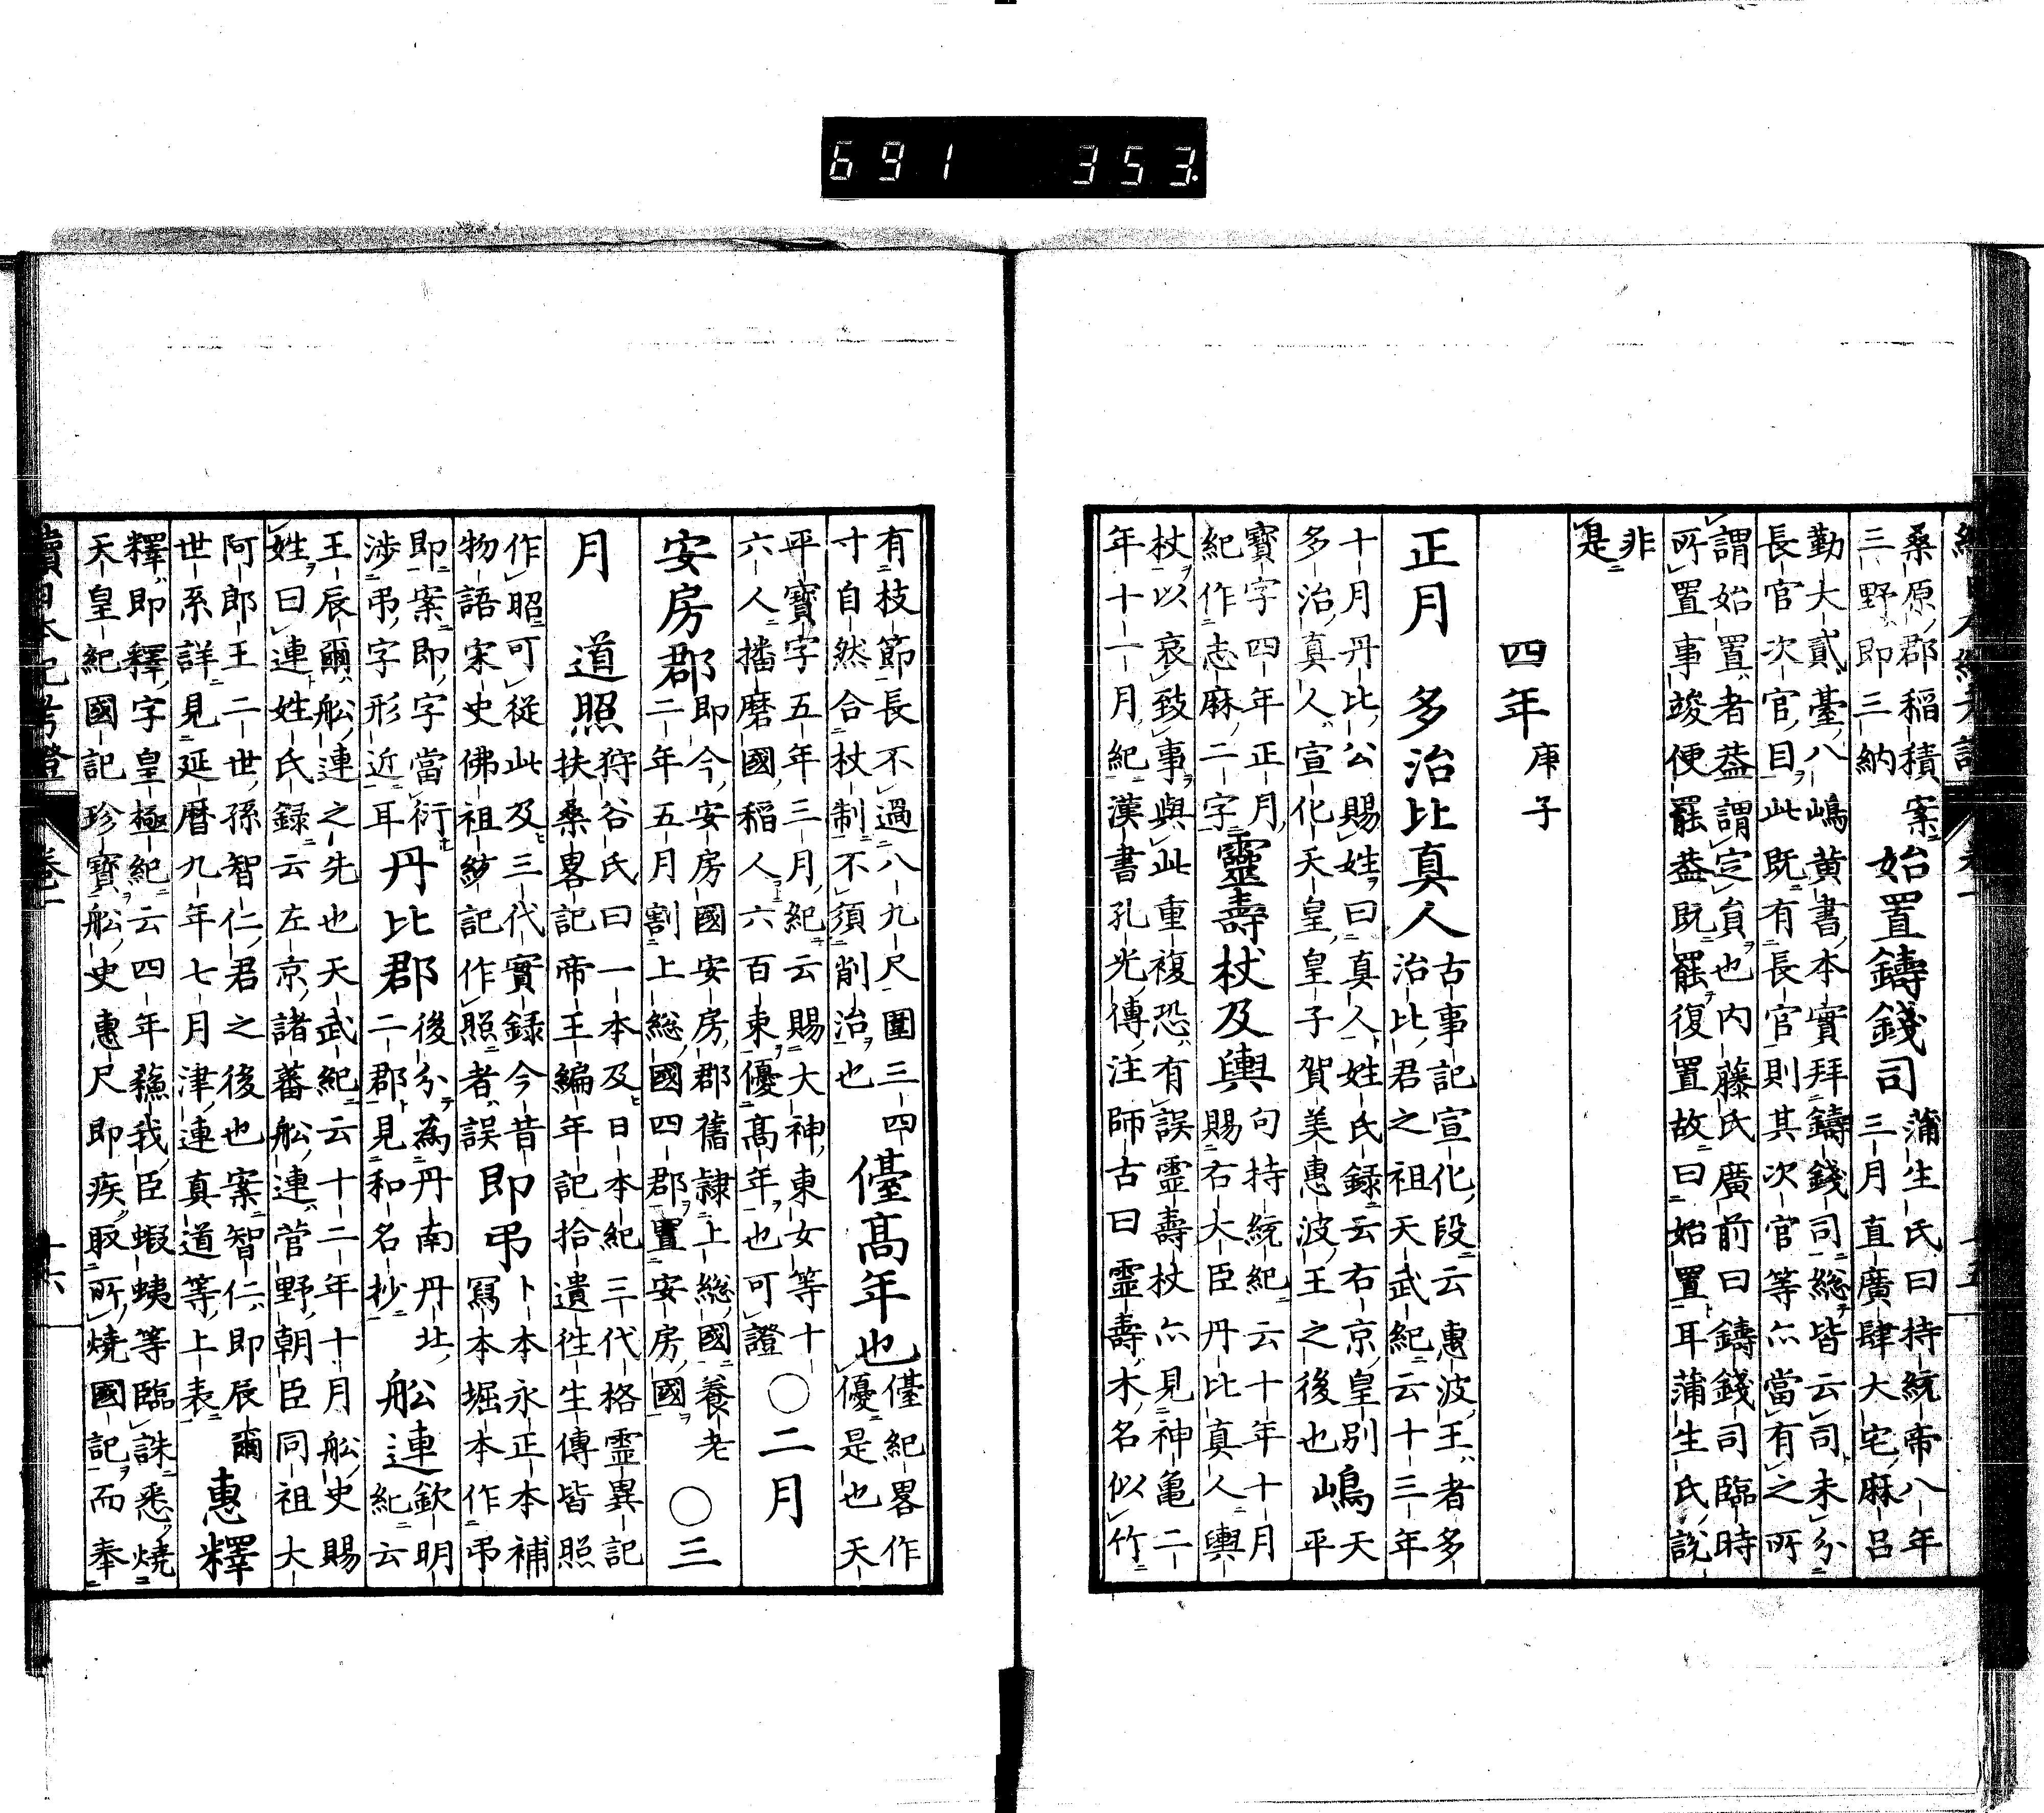 691 353.
桑原郡稻積案始置鑄錢司蒲生氏曰持統帝八年
三野即三納三月直廣肆大宅麻呂
勤大貳臺八嶋黄書本實拜鑄錢司総皆云司未分
長官次官目此既有長官則其次官等亦當有之所
謂始置者蓋謂定員也内藤氏廣前曰鑄錢司臨時
所置事竣便罷蓋既罷復置故曰始置耳蒲生氏説
非
是
四年庚子
正月 多治比真人古事記宣化段云惠波王者多
治比君之祖天武紀云十三年
十月丹比公賜姓曰真人姓氏録云右京皇別
多治真人宣化天皇皇子賀美惠波王之後也嶋天
平
寶字四年正月靈壽杖及輿句持統紀云十年十月
紀作志麻二字賜右大臣丹比真人輿
杖以哀致事與此重複恐有誤靈壽杖亦見神亀二
年十一月紀漢書孔光傳注師古曰靈壽木名似竹
有枝節長不過八九尺圍三四
寸自然合杖制不須削治也優髙年也優紀畧作
優是也天
平寶字五年三月紀云賜大神東女等十
六人播磨國稲人六百束優髙年也可證〇二月
安房郡即今安房國安房郡舊隷上総國養老
二年五月割上総國四郡置安房國〇三
月 道照狩谷氏曰一本及日本紀三代格霊異記
扶桑畧記帝王編年記拾遺往生傳皆照
作昭可從此及三代實録今昔
物語宋史佛祖統記作照者誤即弔卜本永正本補
冩本堀本作弔
即案即字當衍
渉弔字形近耳丹比郡後分為丹南丹北
二郡見和名抄舩連欽明
紀云
王辰爾舩連之先也天武紀云十二年十月舩史賜
姓曰連姓氏録云左京諸蕃舩連菅野朝臣同祖大
阿郎王二世孫智仁君之後也案智仁即辰爾
世系詳見延暦九年七月津連真道等上表惠釋
釋即釋字皇極紀云四年蘇我臣蝦蛦等臨誅悉燒
天皇紀國記珍寶舩史惠尺即疾取所燒國記而奉
續日本紀考證 巻一 十六